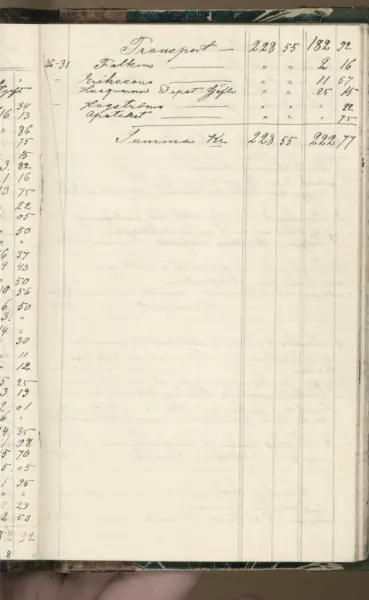 Transport — 228 55 182 92
26-31 Falkens — " " 2 16
— Erikssons — " " 11 57
Husqvarna Depot Gefle " " 25 15
— Hagströms — " " " 22
Apoteket — " " " 75
Summa Kr 228 55 222 77
34
16 13
" 86
75
15
3. 82
1 16
13 75
22
" 05
" 50
" "
6 37
4 43
" 50
10 56
6 50
3. "
14 =
" 30
" 11
" 12
5 25
3. 19
2 01
6 "
4 35
1 98
5 70
5. 05
1 95
" "
23
2 53
92
8